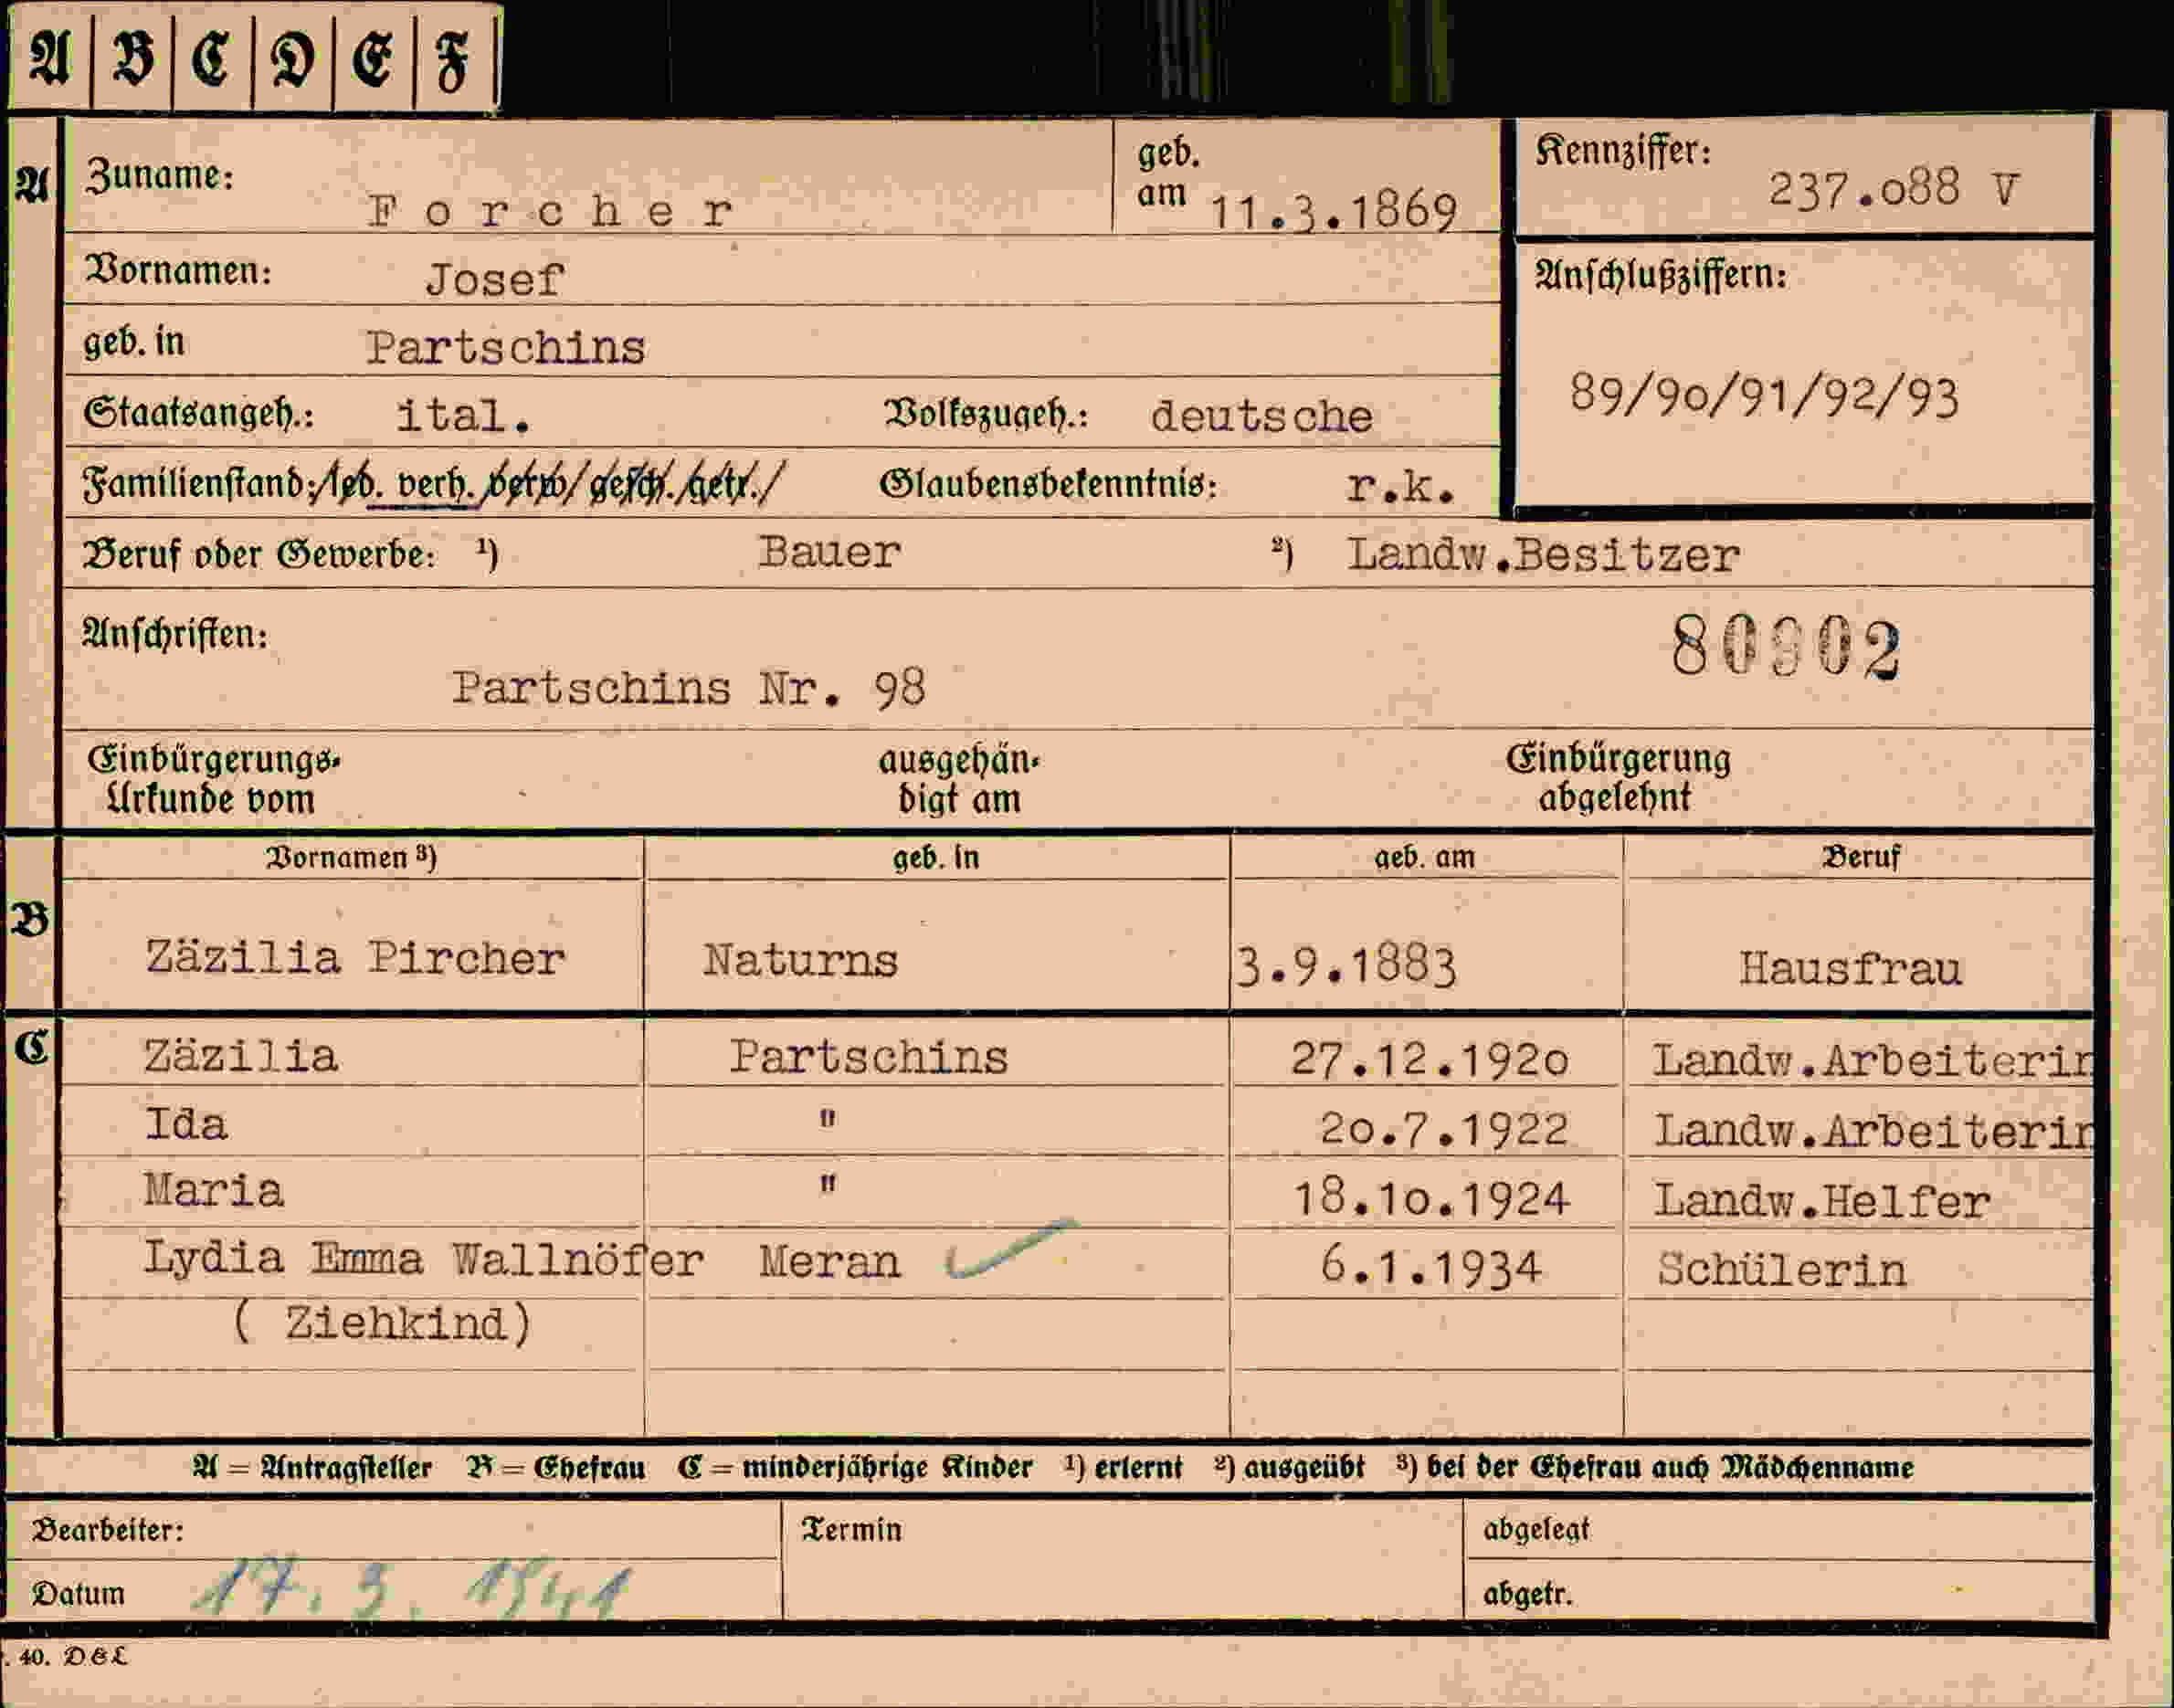 A B C D E F
A Zuname: Forcher geb. am 11.3.1869 Kennziffer: 237.o88 V
Vornamen: Josef
Anschlußziffern:
geb. in Partschins
89/9o/91/92/93
Staatsangeh.: ital. Volkszugeh.: deutsche
Familienstand: led. verh. verw. gesch. getr. Glaubensbekenntnis: r.k.
Beruf oder Gewerbe: ¹) Bauer ²) Landw.Besitzer
Anschriften:
80902
Partschins Nr. 98
Einbürgerungs- ausgehän- Einbürgerung
Urkunde vom digt am abgelehnt
Vornamen ³) geb. in geb. am Beruf
B Zäzilia Pircher Naturns 3.9.1883 Hausfrau
C Zäzilia Partschins 27.12.192o Landw.Arbeiterin
Ida " 2o.7.1922 Landw.Arbeiterin
Maria " 18.1o.1924 Landw.Helfer
Lydia Emma Wallnöfer Meran 6.1.1934 Schülerin
( Ziehkind)
A = Antragsteller B = Ehefrau C = minderjährige Kinder ¹) erlernt ²) ausgeübt ³) bei der Ehefrau auch Mädchenname
Bearbeiter: Termin abgelegt
Datum 17. 3. 1941 abgetr.
. 40. D&L